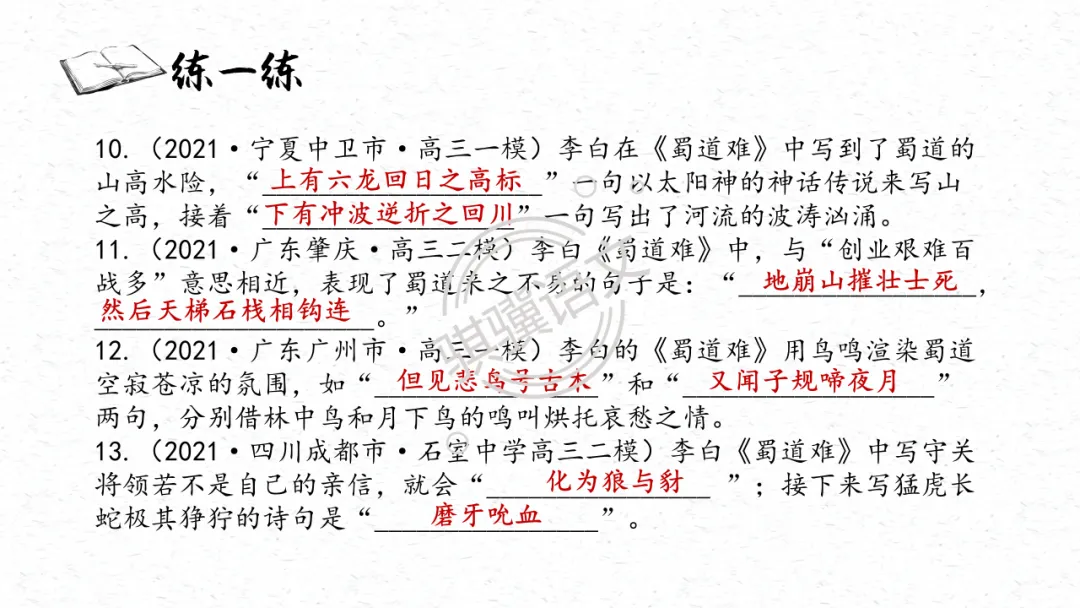 练一练
10.（2021·宁夏中卫市·高三一模）李白在《蜀道难》中写到了蜀道的
山高水险，“上有六龙回日之高标”一句以太阳神的神话传说来写山
之高，接着“下有冲波逆折之回川”一句写出了河流的波涛汹涌。
11.（2021·广东肇庆·高三二模）李白《蜀道难》中，与“创业艰难百
战多”意思相近，表现了蜀道来之不易的句子是：“地崩山摧壮士死，
然后天梯石栈相钩连。”
12.（2021·广东广州市·高三一模）李白的《蜀道难》用鸟鸣渲染蜀道
空寂苍凉的氛围，如“但见悲鸟号古木”和“又闻子规啼夜月”
两句，分别借林中鸟和月下鸟的鸣叫烘托哀愁之情。
13.（2021·四川成都市·石室中学高三二模）李白《蜀道难》中写守关
将领若不是自己的亲信，就会“化为狼与豺”；接下来写猛虎长
蛇极其狰狞的诗句是“磨牙吮血”。
骐骥语文